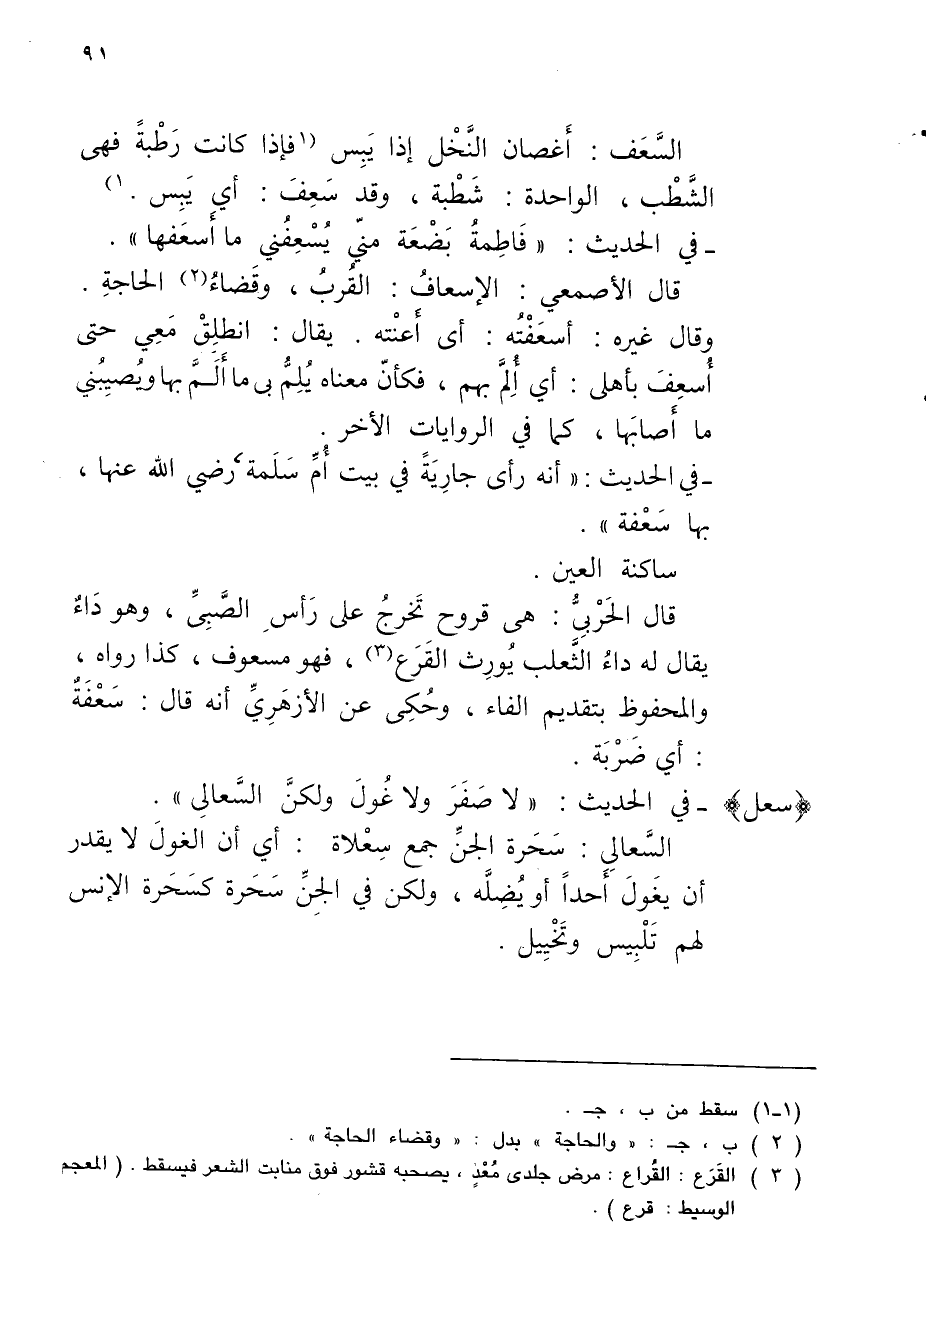 ٩١
السَّعَف : أَغصان النَّخْل إذا يَبِس (١فإذا كانت رَطْبةً فهى
الشَّطْب ، الواحدة : شَطْبة ، وقد سَعِفَ : أي يَبِس .١)
ـ في الحديث : « فَاطِمةُ بَضْعَة منيّ يُسْعِفُني ما أَسعَفها » .
قال الأصمعي : الإسعافُ : القُربُ ، وقَضاءُ(٢) الحاجةِ .
وقال غيره : أسعَفْتُه : أى أَعنْته . يقال : انطلِقْ مَعِي حتى
أُسعِفَ بأهلى : أي أُلِمَّ بهم ، فكأنّ معناه يُلِمُّ بى ما أَلَـمَّ بها ويُصيِبُني
ما أَصابَها ، كما في الروايات الأخر .
ـ في الحديث : « أنه رأى جارِيَةً في بيت أُمِّ سَلَمة رضي الله عنها ،
بها سَعْفة » .
ساكنة العين .
قال الحَرْبِيُّ : هى قروح تَخرجُ على رَأس الصَّبِىِّ ، وهو دَاءٌ
يقال له داءُ الثَّعلب يُورِث القَرَع(٣) ، فهو مسعوف ، كذا رواه ،
والمحفوظ بتقديم الفاء ، وحُكِى عن الأزهَرِيِّ أنه قال : سَعْفَةٌ
: أي ضَرْبَة .
﴿سعل﴾ ـ في الحديث : « لا صَفَرَ ولا غُولَ ولكنَّ السَّعالِي » .
السَّعالِي : سَحَرة الجنِّ جمع سِعْلاة : أي أن الغولَ لا يقدر
أن يغَولَ أَحداً أو يُضِلَّه ، ولكن في الجنِّ سَحَرة كسَحَرة الإنس
لهم تَلْبِيس وتَخْيِيل .
(١-١) سقط من ب ، جـ .
( ٢ ) ب ، جـ : « والحاجة » بدل : « وقضاء الحاجة » .
( ٣ ) القَرَع : القُراع : مرض جلدى مُعْدٍ ، يصحبه قشور فوق منابت الشعر فيسقط . ( المعجم
الوسيط : قرع ) .